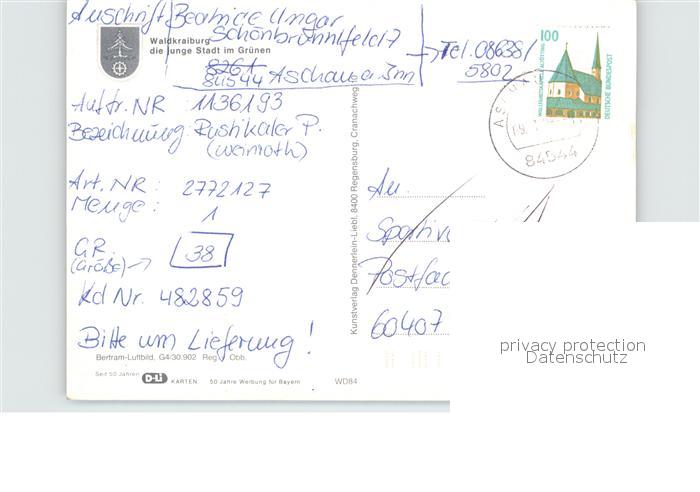 Anschrift Beatrice Ungar
Schönbrunnlfeld 7
8261
84544 Aschau a. Inn
→ Tel. 08638/
5802
Waldkraiburg
die junge Stadt im Grünen
100
WALLFAHRTSKAPELLE ALTÖTTING
DEUTSCHE BUNDESPOST
84544
Auftr. NR : 1136193
Bezeichnung: Rustikaler P.
(weinroth)
Art. NR : 2772127
Menge : 1
GR. 38
(Größe) →
Kd Nr. 482859
Bitte um Lieferung!
An
Postfac
60407
Kunstverlag Dennerlein-Liebl, 8400 Regensburg, Cranachweg
Bertram-Luftbild, G4/30.902 Reg. Obb.
Seit 50 Jahren D-Li KARTEN 50 Jahre Werbung für Bayern
WD84
privacy protection
Datenschutz